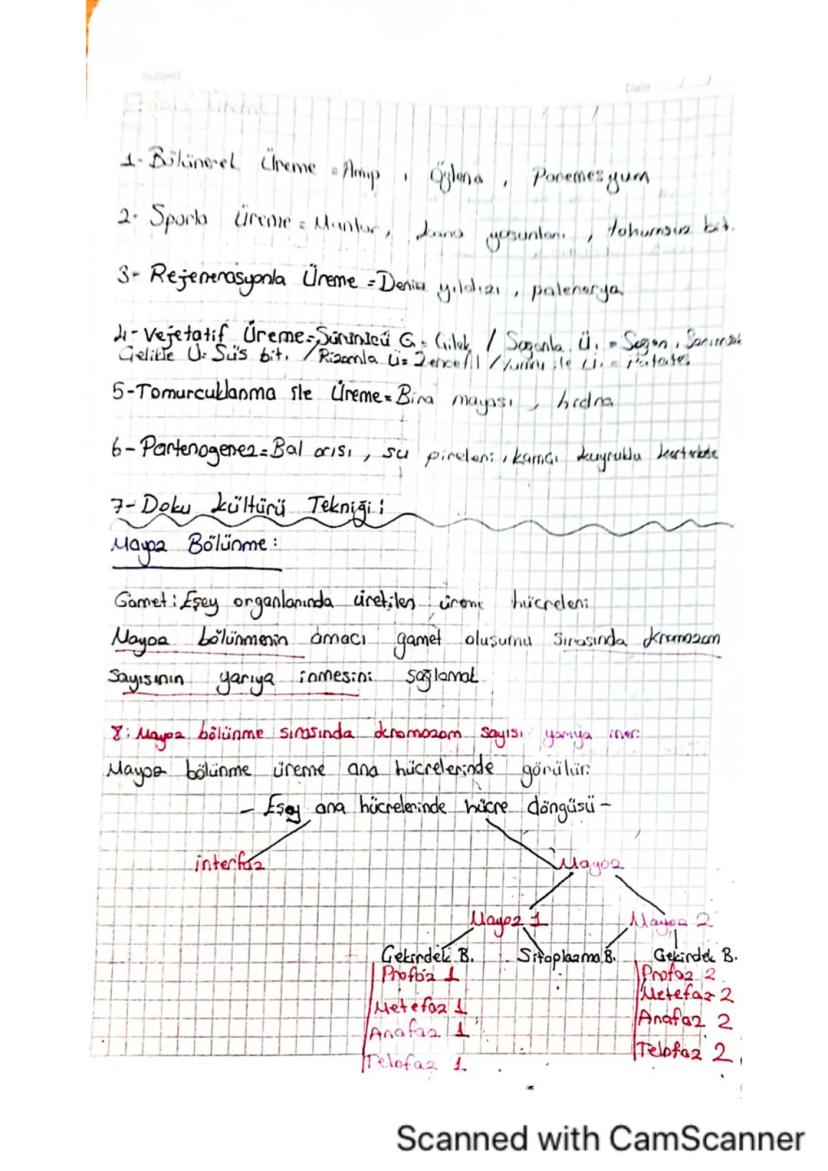 Subject
Date / /
Eşeysiz Üreme
1- Bölünerel Üreme = Amip , Öglena , Paremesyum
2- Sporla Üreme = Mantar, kara yosunları , tohumsuz bit.
3- Rejenerasyonla Üreme = Deniz yıldızı , palenarya
4- Vejetatif Üreme = Sürünücü G = Çilek / Soğanla Ü. = Soğan , Sarımsak
Çelikle Ü = Süs bit. / Rizomla Ü = Zencefil / Yumru ile Ü. = Patates
5- Tomurcuklanma ile Üreme = Bira mayası , hidra
6- Partenogenez = Bal arısı , su pireleri , kamçı kuyruklu kertenkele
7- Doku kültürü Tekniği :
Mayoz Bölünme :
Gamet : Eşey organlarında üretilen üreme hücreleri
Mayoz bölünmenin amacı gamet oluşumu sırasında kromozom
sayısının yarıya inmesini sağlamak
8: Mayoz bölünme sırasında kromozom sayısı yarıya iner.
Mayoz bölünme üreme ana hücrelerinde görülür.
- Eşey ana hücrelerinde hücre döngüsü -
interfaz Mayoz
Mayoz 1 Mayoz 2
Çekirdek B. Sitoplazma B. Çekirdek B.
Profaz 1 Profaz 2
Metefaz 1 Metefaz 2
Anafaz 1 Anafaz 2
Telofaz 1 Telofaz 2
Scanned with CamScanner